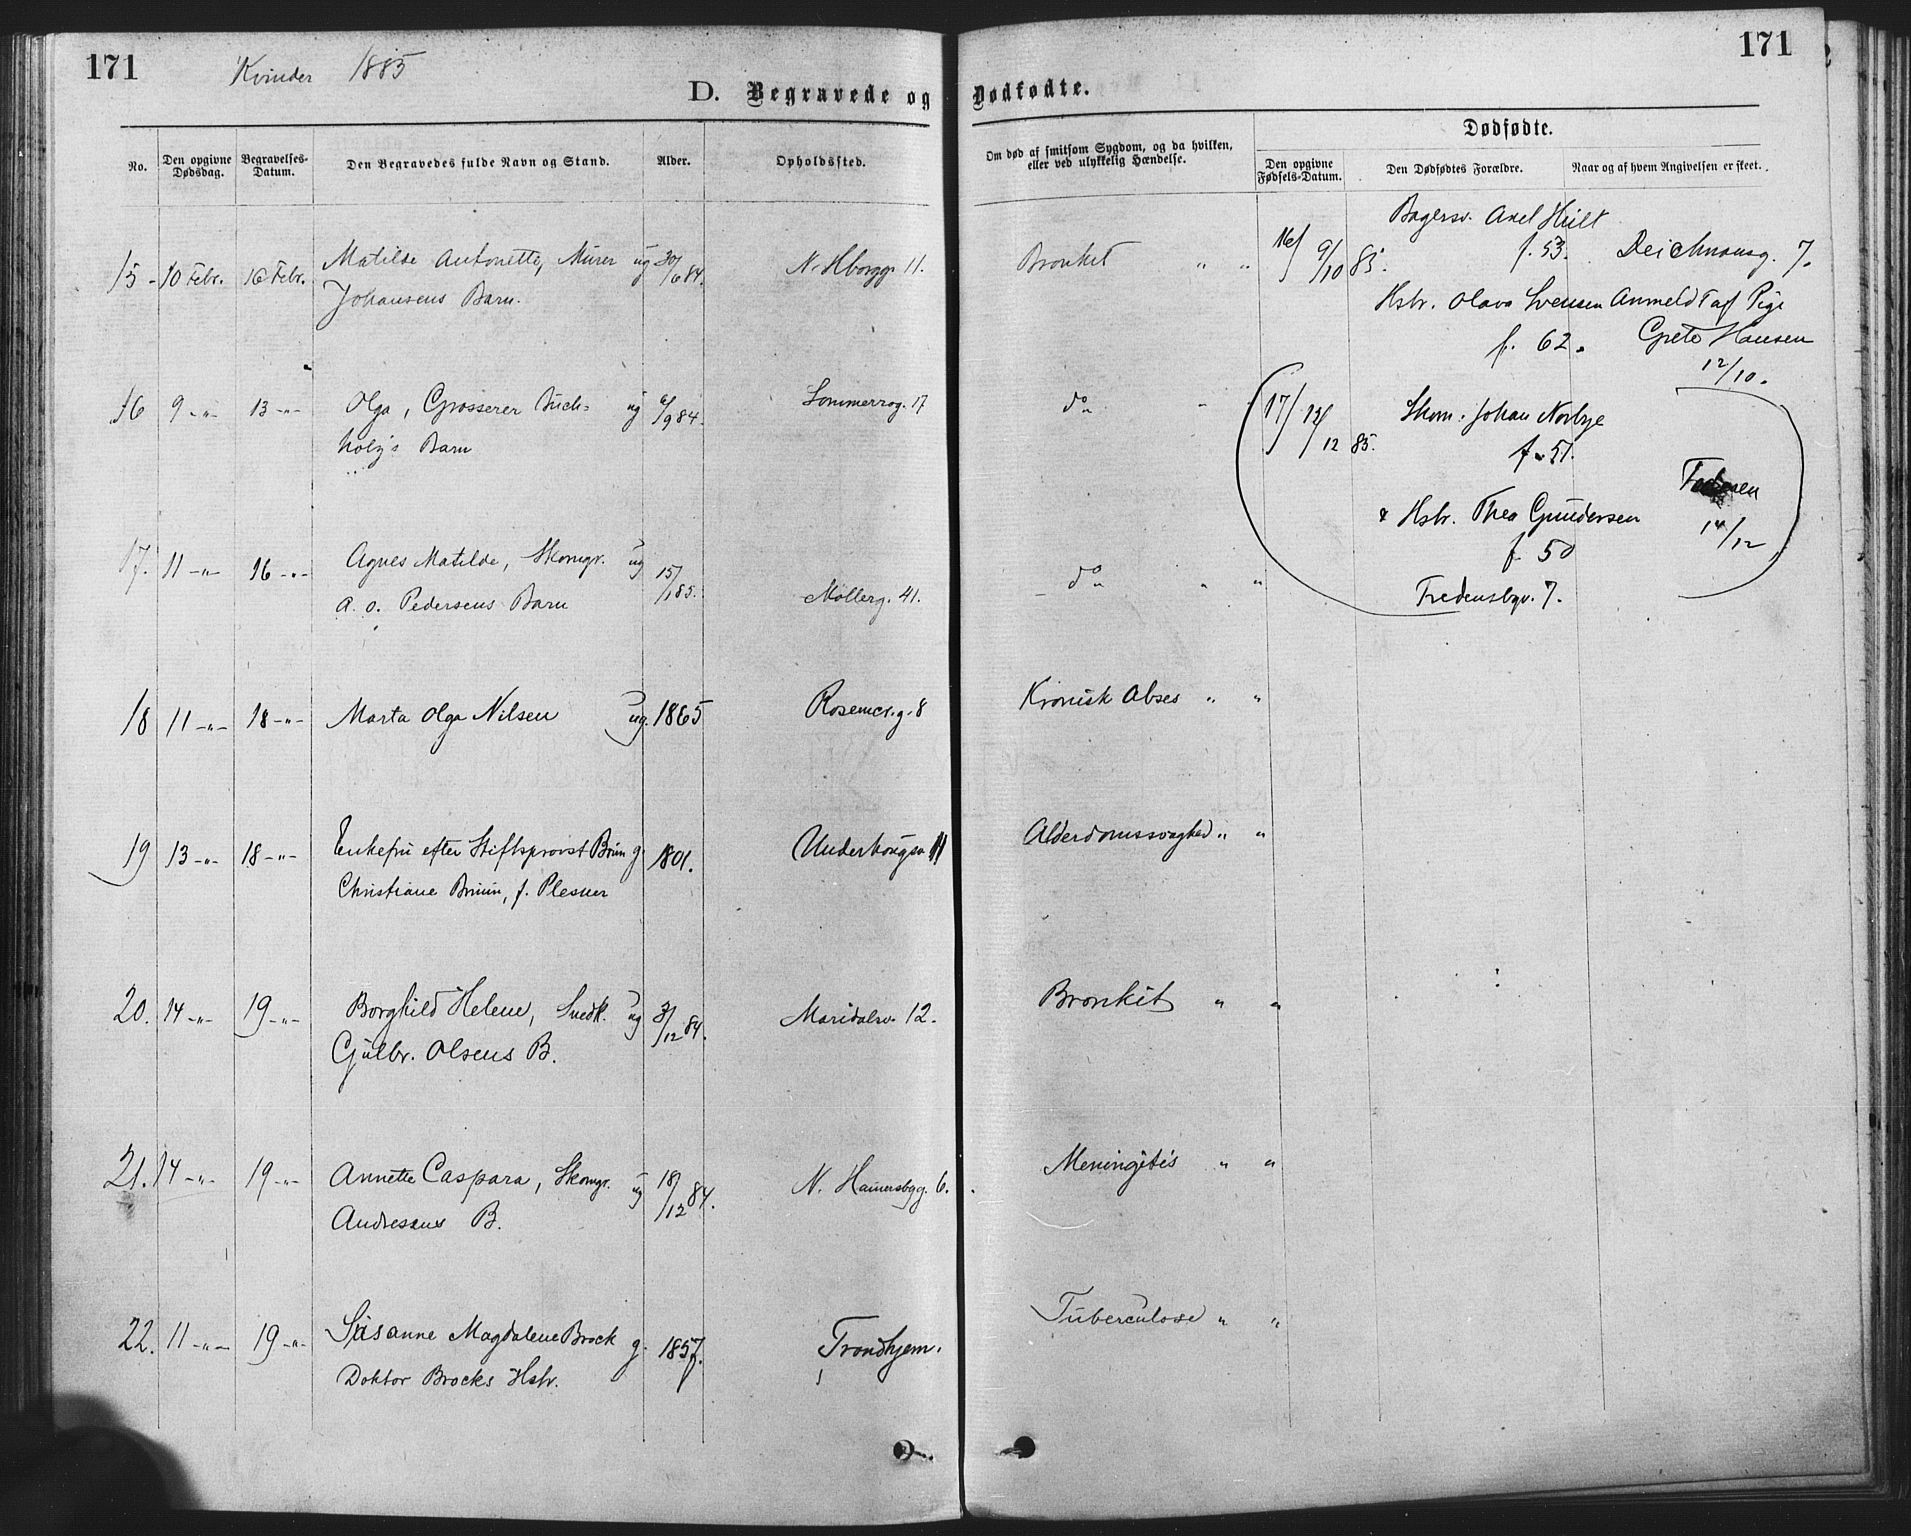 171 Kvinder 1885 171
D. Begravede og Dødfødte.
Dødfødte.
No. Den opgivne Dødsdag. Begravelses-Datum. Den Begravedes fulde Navn og Stand. Alder. Opholdssted. Om død af smitsom Sygdom, og da hvilken, eller ved ulykkelig Hændelse. Den opgivne Fødsels-Datum. Den Dødfødtes Forældre. Naar og af hvem Angivelsen er skeet.
15 - 10 Febr. 16 Febr. Matilde Antonette, Murer ug 30/6 84. 11. Bronkit " "
Johansens Barn.
16) 9/10 85. Bagersv. Axel
f. 53. Deichmansg. 7.
Hsbr. Olava Svensen Anmeldt af Pige
f. 62. Grete Hansen
12/10.
16 9 -"- 13 -"- Olga, Grosserer Buch- ug 6/9 84. Sommerrog. 17 do " "
holz's Barn
17) 13/12 85. Skom. Johan Norbye
f. 51.
& Hsbr. Thea Gundersen 14/12
f. 50
Fredensbgv. 7.
17. 11 -"- 16 -"- Agnes Matilde, Skomgr. ug 15/1 85. Møllerg. 41. do " "
A. O. Pedersens Barn
18 11 -"- 18 -"- Marta Olga Nilsen ug. 1865 Rosencr.g. 8 Kronisk Abses " "
19 13 -"- 18 -"- Enkefru efter Stiftsprovst Bruun g 1801. 11 Alderdomssvaghed " "
Christiane Bruun, f. Plesner
20. 14 -"- 19 -"- Borghild Helene, Snedk. ug 3/12 84. Maridalsv. 12. Bronkit " "
Gulbr. Olsens B.
21. 14 -"- 19 -"- Annette Caspara, Skomgr. ug 18/12 84. N. 6. Meningitis " "
Andresens B.
22. 11 -"- 19 -"- Susanne Magdalene Brock g. 1857. Trondhjem. Tuberculose " "
Doktor Brocks Hstr.